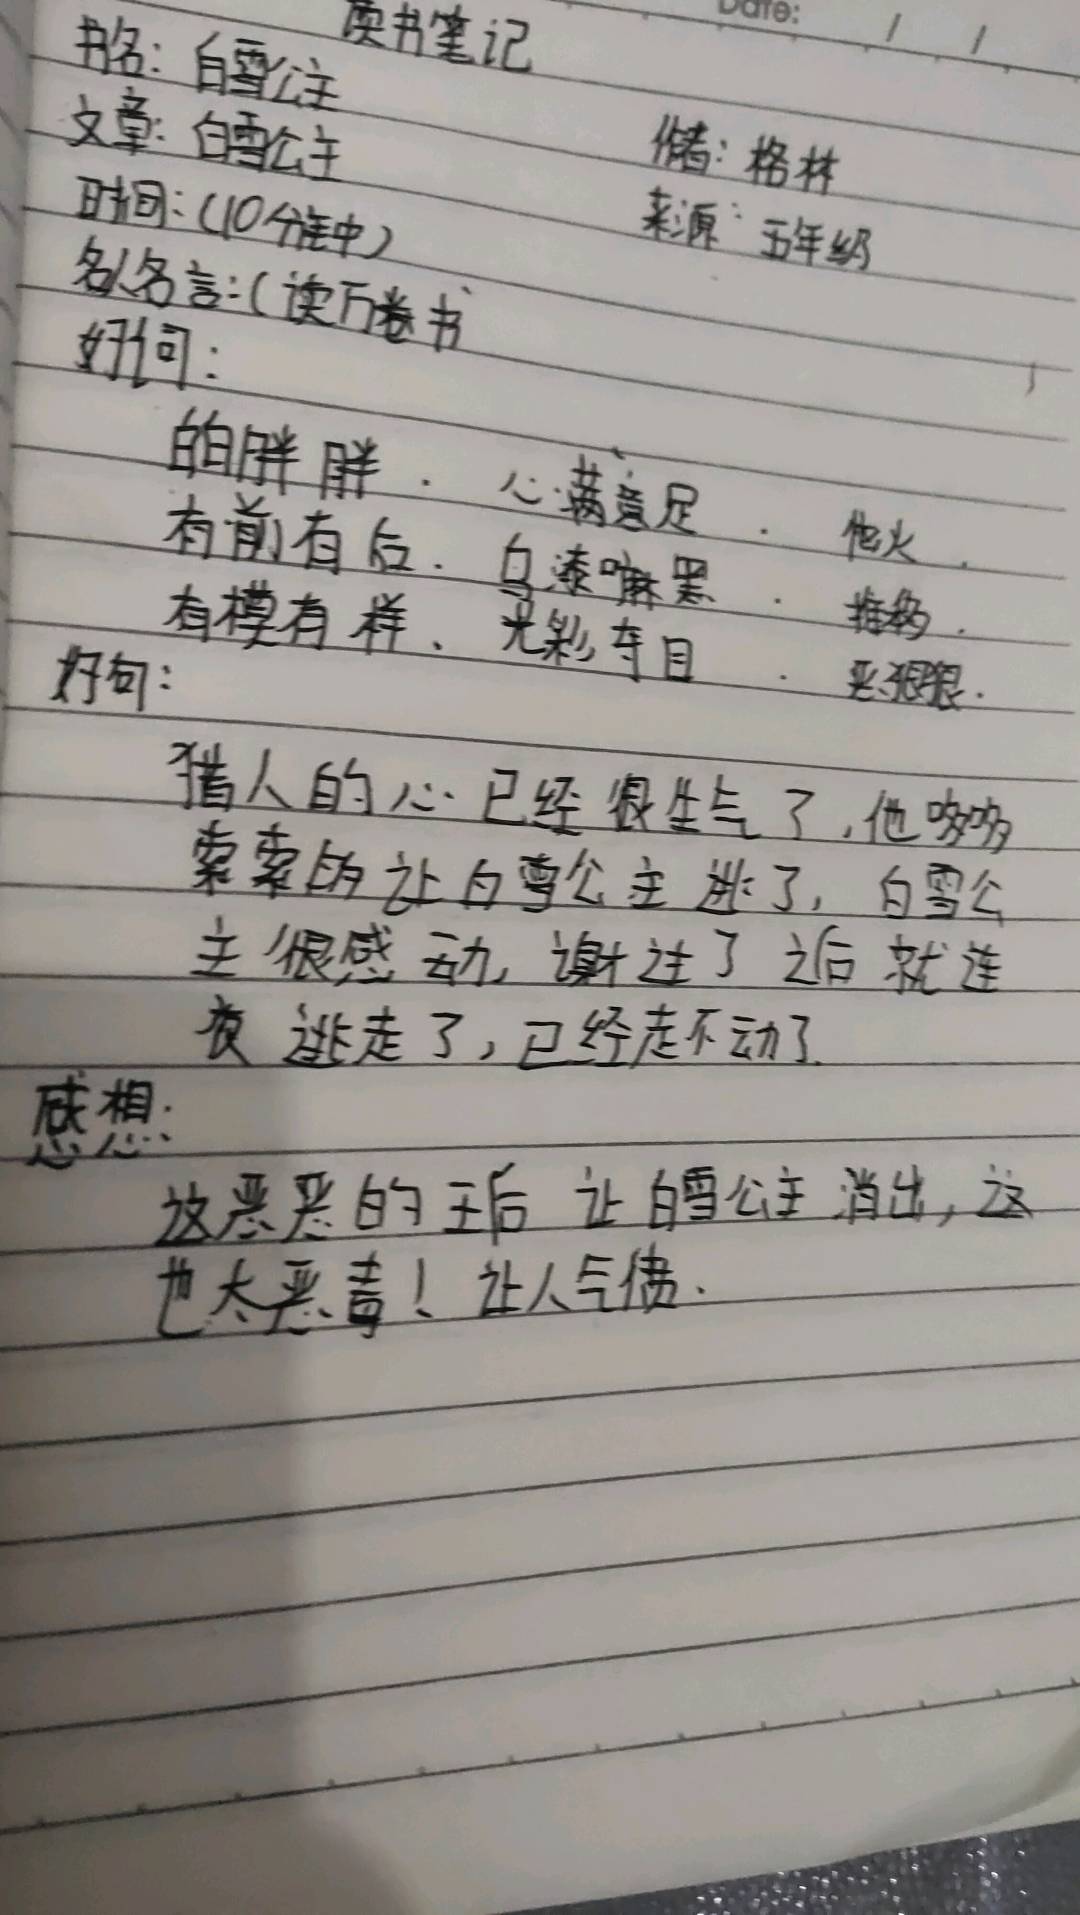 Date: / /
读书笔记
书名：白雪公主
文章：白雪公主 作者：格林
时间：(10分钟) 来源：五年级
名人名言：(读万卷书
好词：
白白胖胖． 心满意足．
有前有后． 乌漆嘛黑．
有模有样、 光彩夺目． 恶狠狠．
好句：
猎人的心已经很生气了，他哆哆
索索的让白雪公主逃了，白雪公
主很感动，谢过了之后就连
夜逃走了，已经走不动了．
感想：
这恶恶的王后让白雪公主消出，这
也太恶毒！让人气愤．